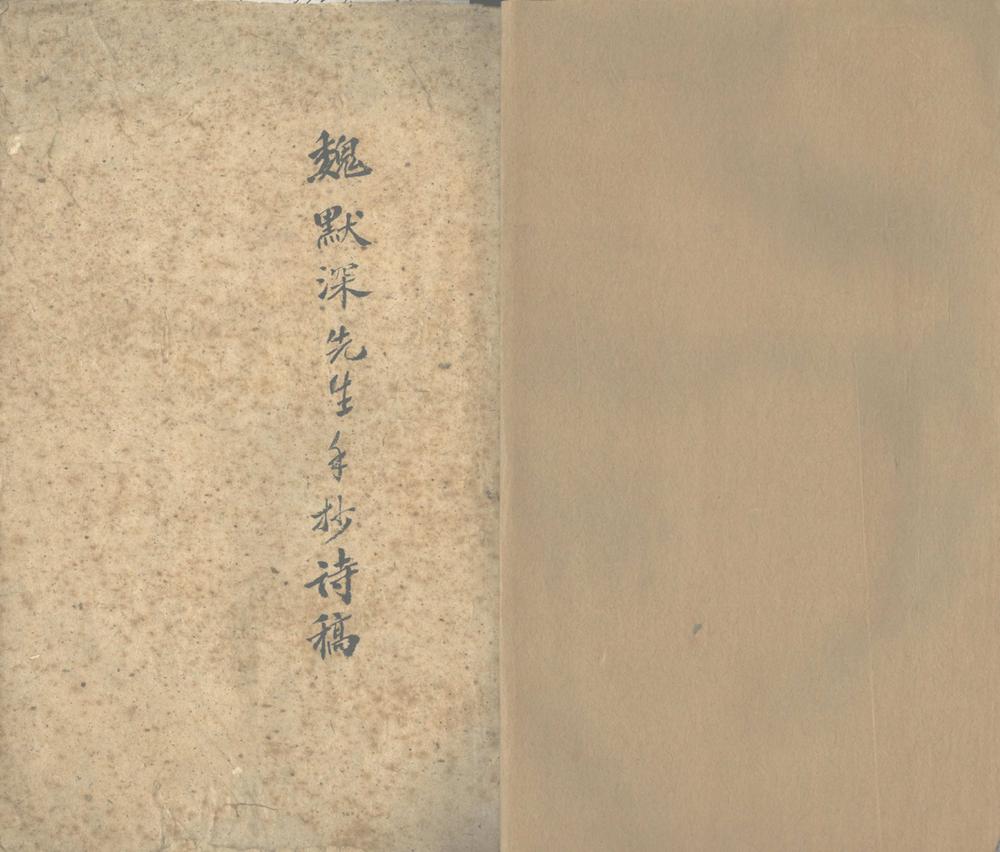 魏默深先生手抄诗稿